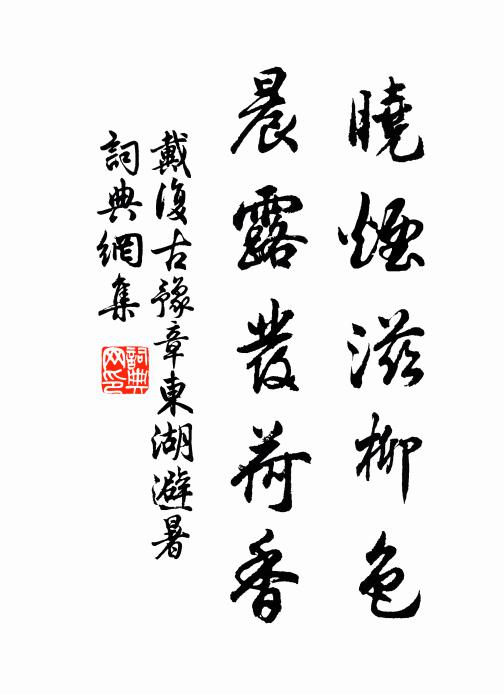 曉煙滋柳色
晨露發荷香
戴復古豫章東湖避暑
詞典網集
詞典網印